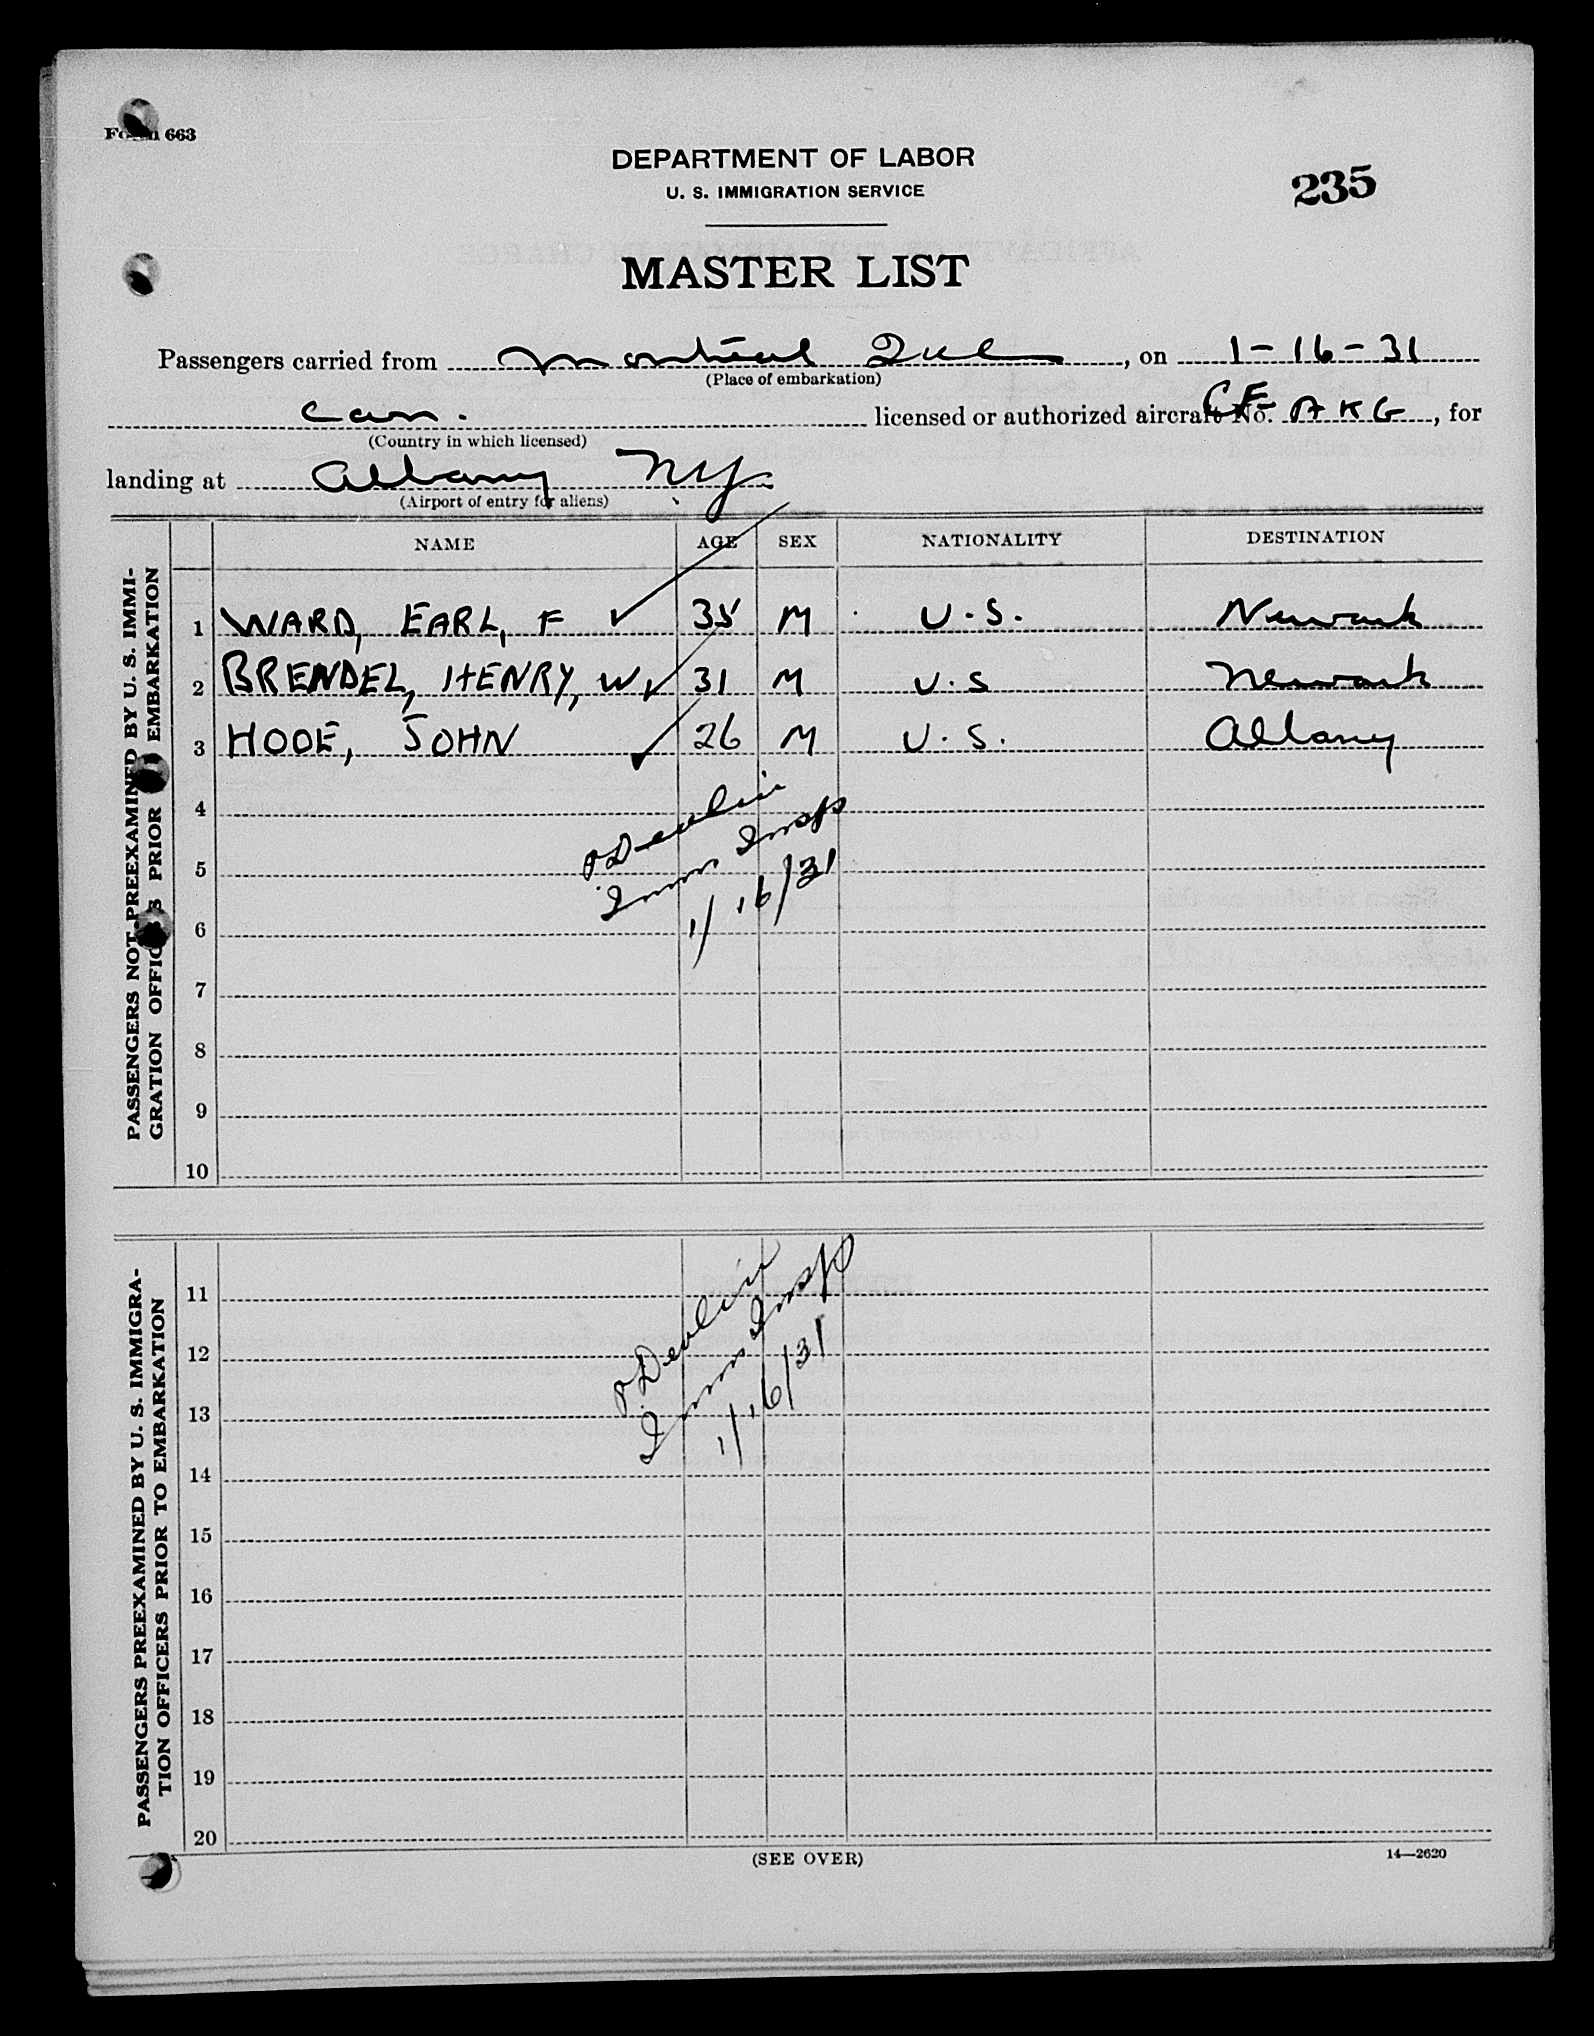 Form 663
DEPARTMENT OF LABOR
U. S. IMMIGRATION SERVICE
235
MASTER LIST
Passengers carried from Montreal Que, on 1-16-31
(Place of embarkation)
Can. licensed or authorized aircraft No. CF AKG, for
(Country in which licensed)
landing at Albany NY
(Airport of entry for aliens)
NAME AGE SEX NATIONALITY DESTINATION
PASSENGERS NOT PREEXAMINED BY U. S. IMMI-
GRATION OFFICERS PRIOR TO EMBARKATION
1 WARD, EARL, F 35 M U.S. Newark
2 BRENDEL, HENRY, W 31 M U.S Newark
3 HODE, JOHN 26 M U.S. Albany
4
5
6
7
8
9
10
Devlin
Imm Insp
1/16/31
PASSENGERS PREEXAMINED BY U. S. IMMIGRA-
TION OFFICERS PRIOR TO EMBARKATION
11
12
13
14
15
16
17
18
19
20
Devlin
Imm Insp
1/16/31
(SEE OVER)
14—2620